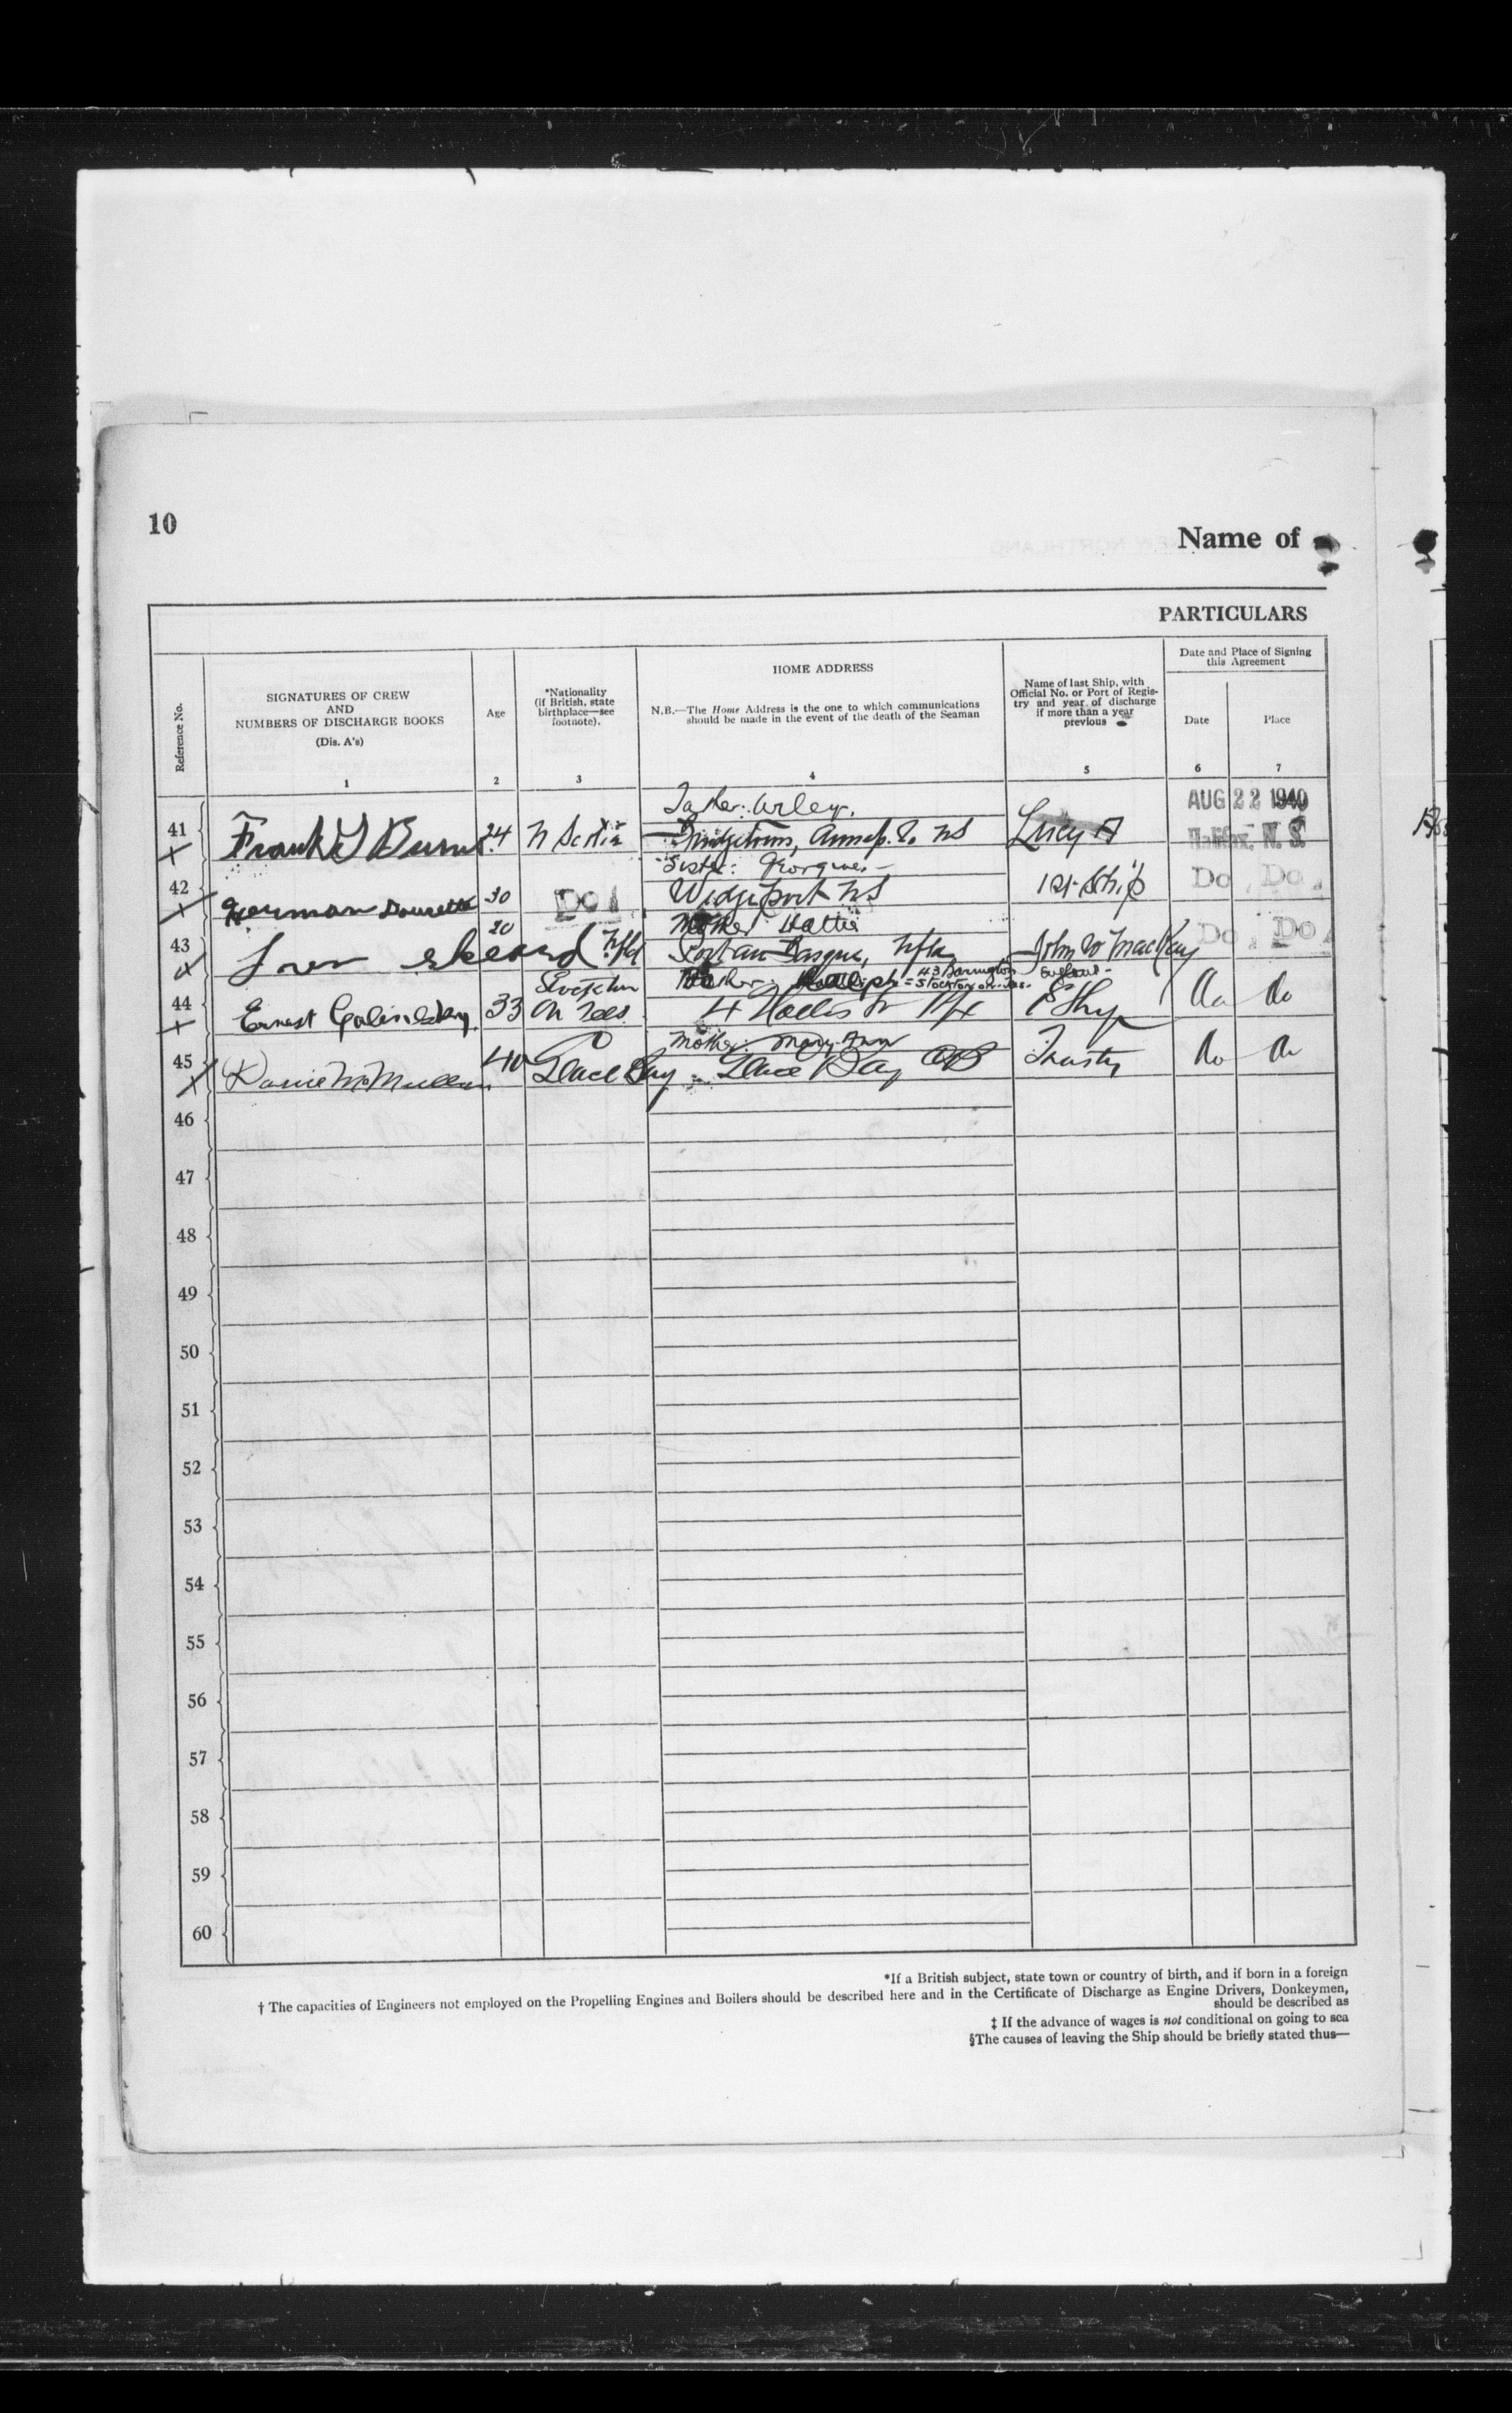 10
Name of
PARTICULARS
Reference No.
SIGNATURES OF CREW
AND
NUMBERS OF DISCHARGE BOOKS
(Dis. A's)
1
Age
2
*Nationality
(if British, state
birthplace—see
footnote).
3
HOME ADDRESS
N.B.—The Home Address is the one to which communications
should be made in the event of the death of the Seaman
4
Name of last Ship, with
Official No. or Port of Regis-
try and year of discharge
if more than a year
previous
5
Date and Place of Signing
this Agreement
Date
6
Place
7
Arley.
AUG 22 1940
41 Frank 24 N Scotia NS Lucy Halifax, N. S.
Sister:
42 Herman 30 Do Wedgeport NS 1st Ship Do Do
Mother Hattie
43 20 Nfld Port au Basque, Nfld John W MacKay Do Do
44 Ernest 33 On Tees 4 Hollis St Do Do
Mother. Mary Ann
45 McMullin 40 Glace Bay Glace Bay CB Trusty Do Do
46
47
48
49
50
51
52
53
54
55
56
57
58
59
60
*If a British subject, state town or country of birth, and if born in a foreign
† The capacities of Engineers not employed on the Propelling Engines and Boilers should be described here and in the Certificate of Discharge as Engine Drivers, Donkeymen,
should be described as
‡ If the advance of wages is not conditional on going to sea
§The causes of leaving the Ship should be briefly stated thus—